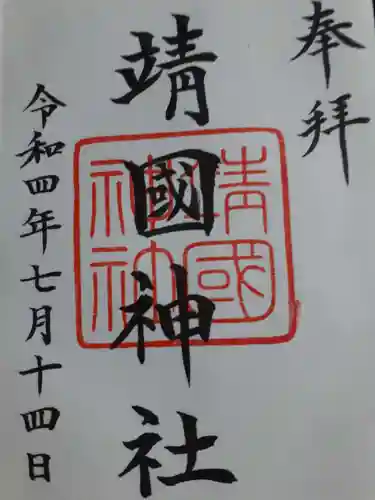 奉拝
靖國神社
令和四年七月十四日
靖國
神社